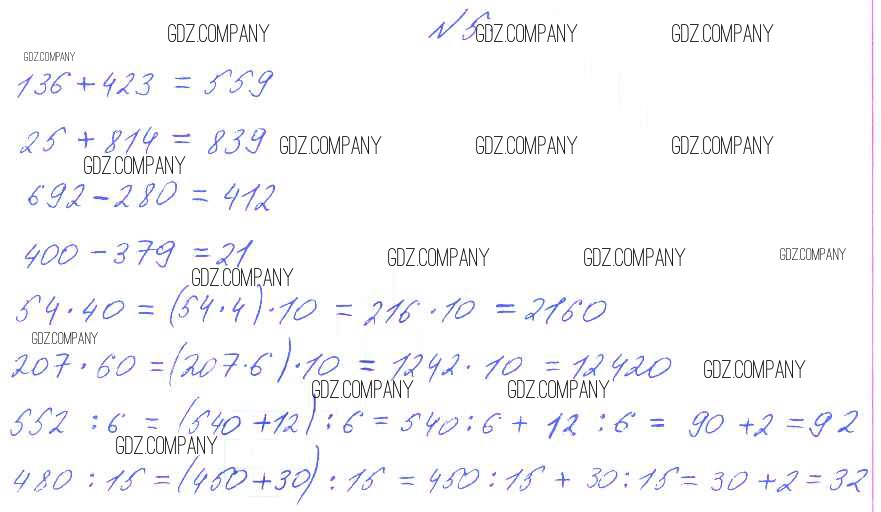 GDZ.COMPANY № 5. GDZ.COMPANY GDZ.COMPANY
GDZ.COMPANY
136 + 423 = 559
25 + 814 = 839 GDZ.COMPANY GDZ.COMPANY GDZ.COMPANY
GDZ.COMPANY
692 - 280 = 412
400 - 379 = 21 GDZ.COMPANY GDZ.COMPANY GDZ.COMPANY
GDZ.COMPANY
54 · 40 = (54 · 4) · 10 = 216 · 10 = 2160
GDZ.COMPANY
207 · 60 = (207 · 6) · 10 = 1242 · 10 = 12420 GDZ.COMPANY
GDZ.COMPANY GDZ.COMPANY
552 : 6 = (540 + 12) : 6 = 540 : 6 + 12 : 6 = 90 + 2 = 92
GDZ.COMPANY
480 : 15 = (450 + 30) : 15 = 450 : 15 + 30 : 15 = 30 + 2 = 32